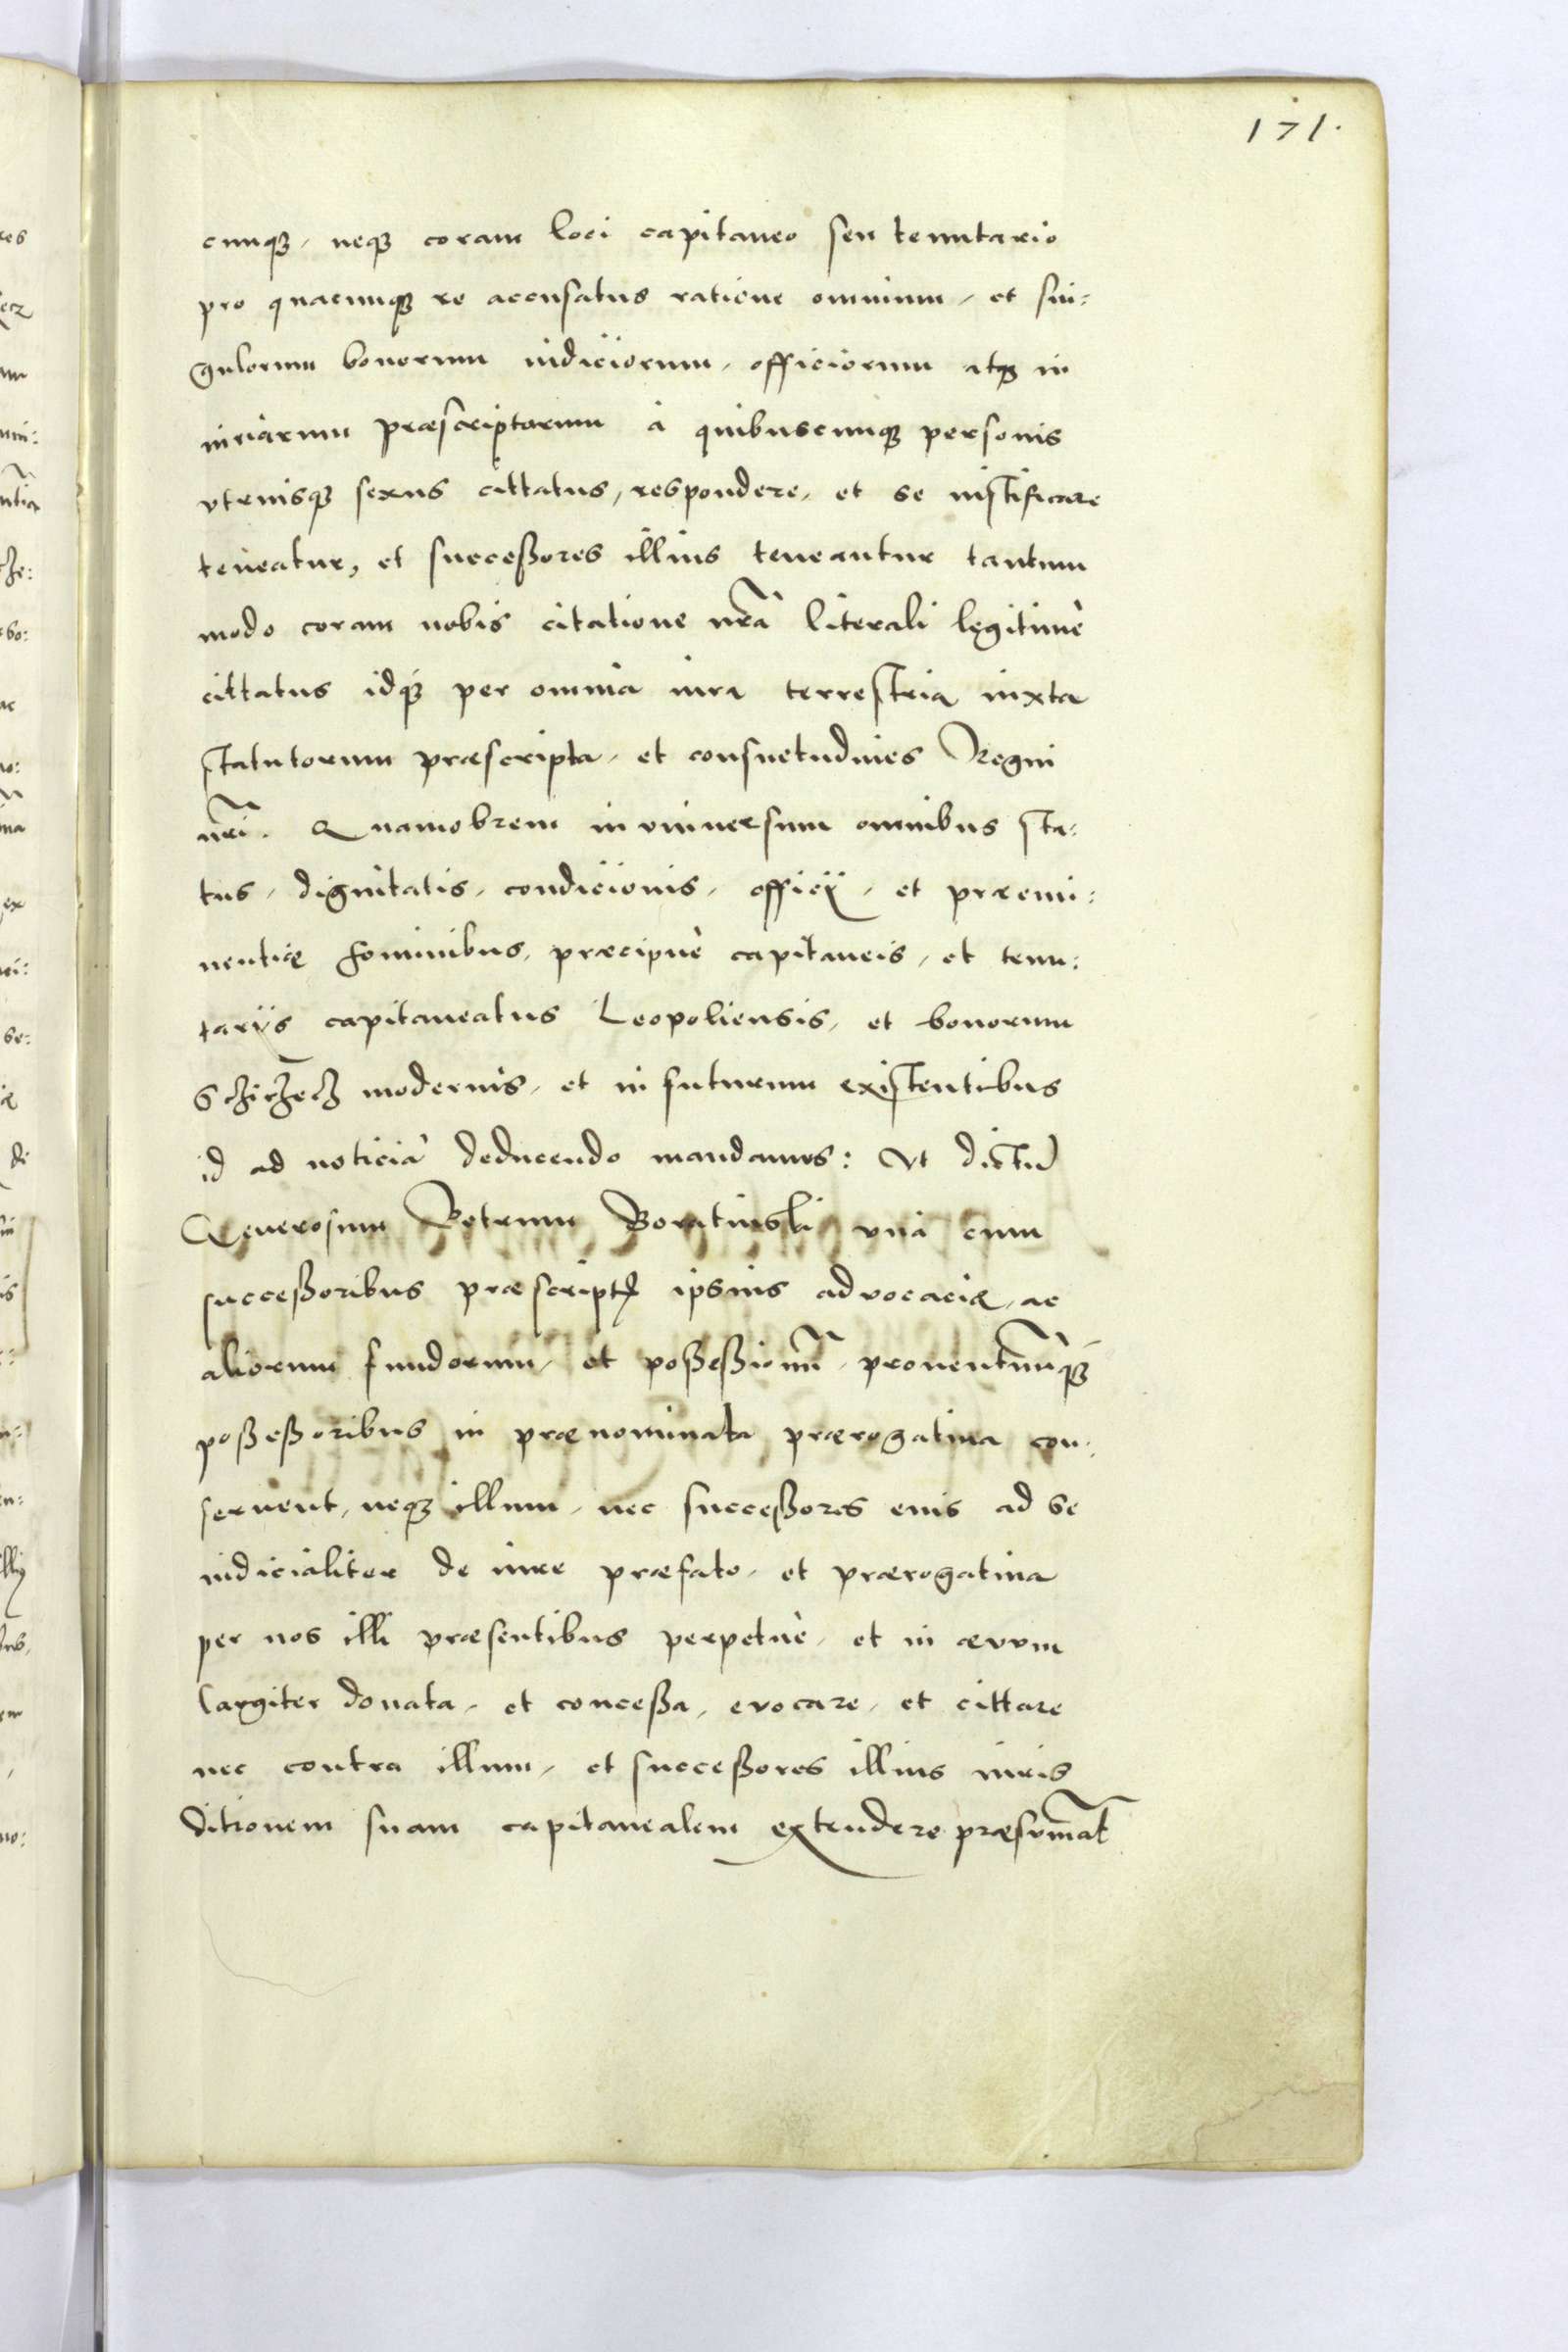 171.
cunq₃, neq₃ coram loci capitaneo seu tenutario
pro quacunq₃ re accusatus ratione omnium, et sin:
gulorum bonorum iudiciorum, officiorum atq₃ in
iuriarum præscriptorum à quibuscunq₃ personis
vtriusq₃ sexus cittatus, respondere, et se iustificare
teneatur, et successores illius teneantur tantum
modo coram nobis citatione nr̃a literali legitimè
cittatus idq́₃ per omnia iura terrestria iuxta
statutorum præscripta, et consuetudines Regni
nr̃i. Quamobrem in vniuersum omnibus sta:
tus, dignitatis, condicionis, officij, et præemi:
nentiæ hominibus, præcipuè capitaneis, et tenu:
tarijs capitaneatus Leopoliensis, et bonorum
Schirzech modernis, et in futurum existentibus
id ad noticiã deducendo mandamus: Vt dictũ
Generosum Petrum Boratinski vnà cum
successoribus præscriptę ipsius advocaciæ, ac
aliorum fundorum, et possessionũ, prouentuumq́₃
possessoribus in prænominata prærogatiua con:
seruent, neq₃ illum, nec successores eius ad se
iudicialiter de iure præfato, et prærogatiua
per nos illi præsentibus perpetuè, et in ævvm
largiter donata, et concessa, evocare, et cittare
nec contra illum, et successores illius iuris
ditionem suam capitanealem extendere præsumãt